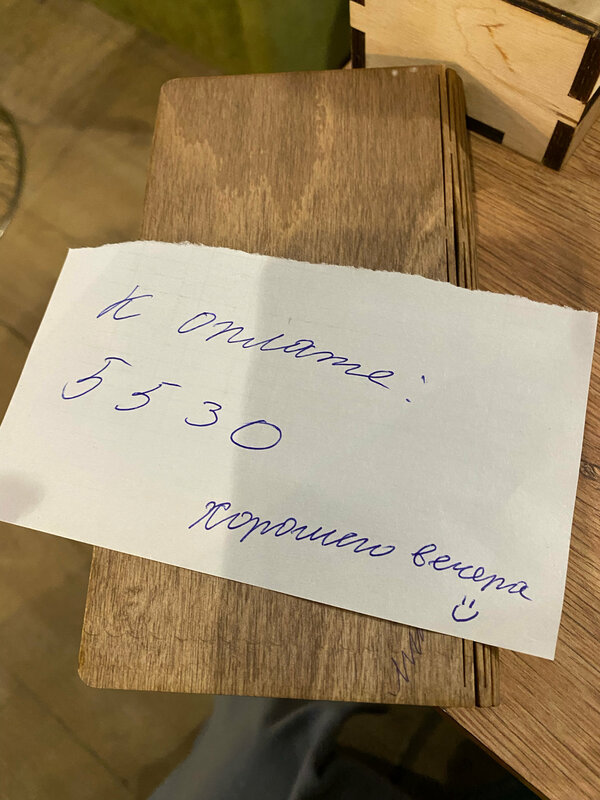 К оплате:
5530
хорошего вечера